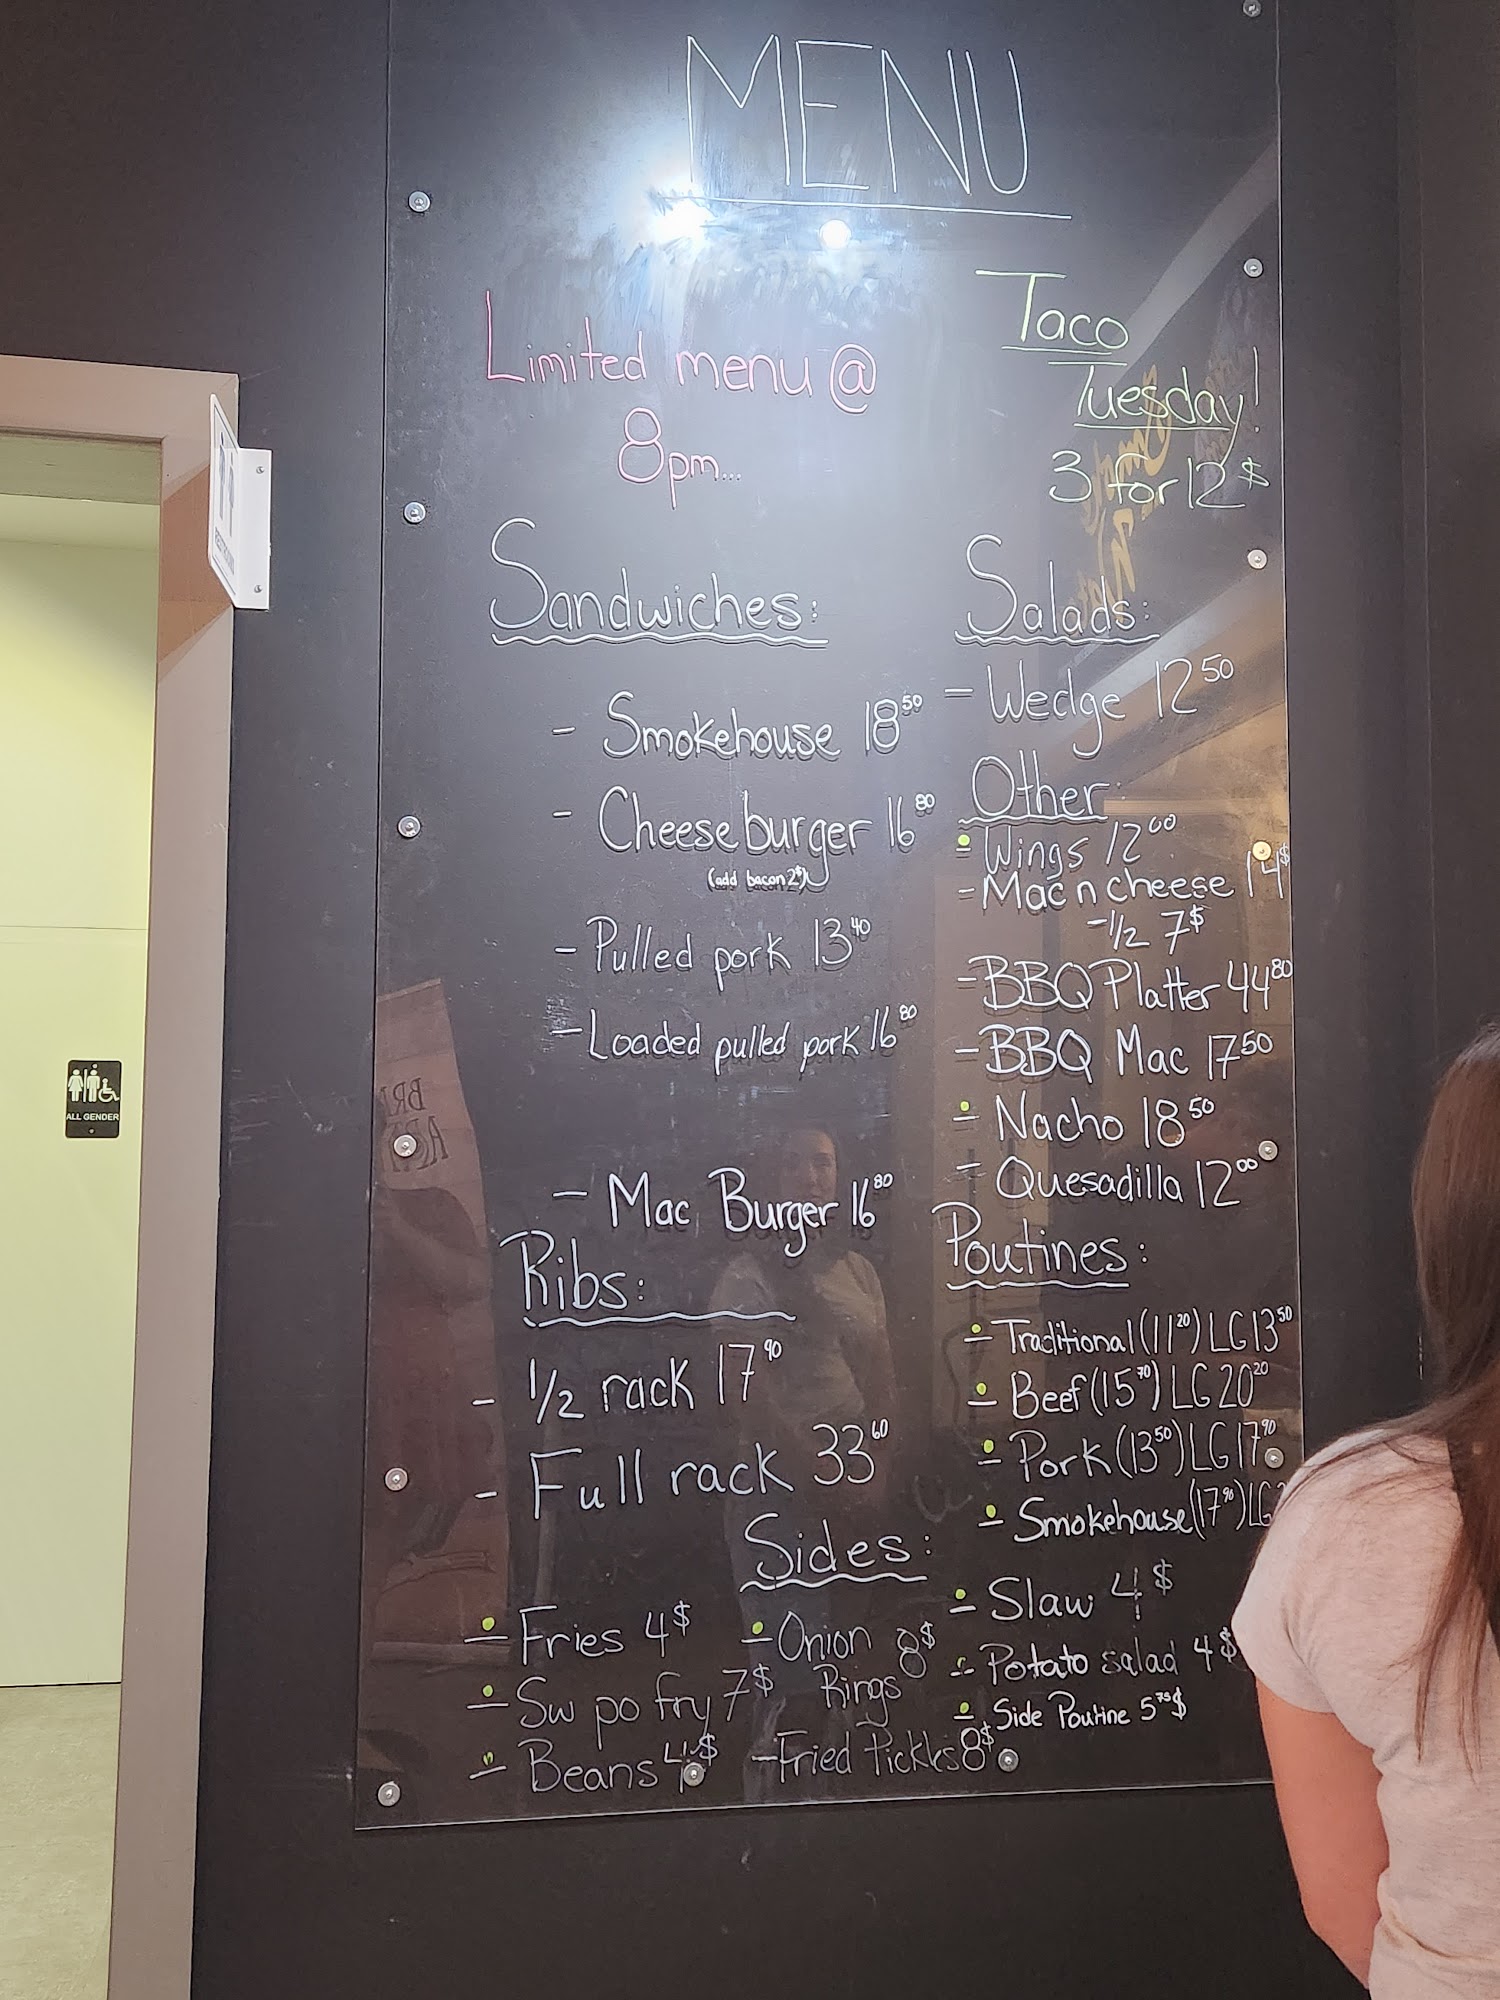 MENU
Limited menu @
8pm...
Taco
Tuesday!
3 for 12$
Sandwiches:
- Smokehouse 18⁵⁰
- Cheeseburger 16⁸⁰
(add bacon 2$)
- Pulled pork 13⁴⁰
- Loaded pulled pork 16⁸⁰
- Mac Burger 16⁸⁰
Ribs:
- 1/2 rack 17⁹⁰
- Full rack 33⁶⁰
Salads:
- Wedge 12⁵⁰
Other:
- Wings 12⁰⁰
- Mac n cheese 14$
- 1/2 7$
- BBQ Platter 44⁸⁰
- BBQ Mac 17⁵⁰
- Nacho 18⁵⁰
- Quesadilla 12⁰⁰
Poutines:
- Traditional (11²⁰) LG 13⁵⁰
- Beef (15⁷⁰) LG 20²⁰
- Pork (13⁵⁰) LG 17⁹⁰
- Smokehouse (17⁹⁰) LG
Sides:
- Fries 4$
- Sw po fry 7$
- Beans 4$
- Onion 8$
Rings
- Fried Pickles 8$
- Slaw 4$
- Potato salad 4$
- Side Poutine 5⁷⁵$
ALL GENDER
RESTROOM